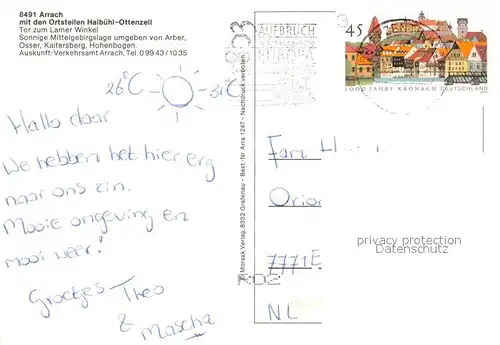 8491 Arrach
mit den Ortsteilen Haibühl-Ottenzell
Tor zum Lamer Winkel
Sonnige Mittelgebirgslage umgeben von Arber,
Osser, Kaitersberg, Hohenbogen.
Auskunft: Verkehrsamt Arrach, Tel. 0 99 43 / 10 35
26°C
31°C
Hallo daar
We hebben het hier erg
naar ons zin.
Mooie omgeving en
mooi weer!
Groetjes Theo
& Mascha
Morsak Verlag, 8352 Grafenau - Best.-Nr. Arra 1247 - Nachdruck verboten
AUFBRUCH
EUROPA
45
1000 JAHRE KRONACH DEUTSCHLAND
Fam
Orion
7771E
NL
privacy protection
Datenschutz